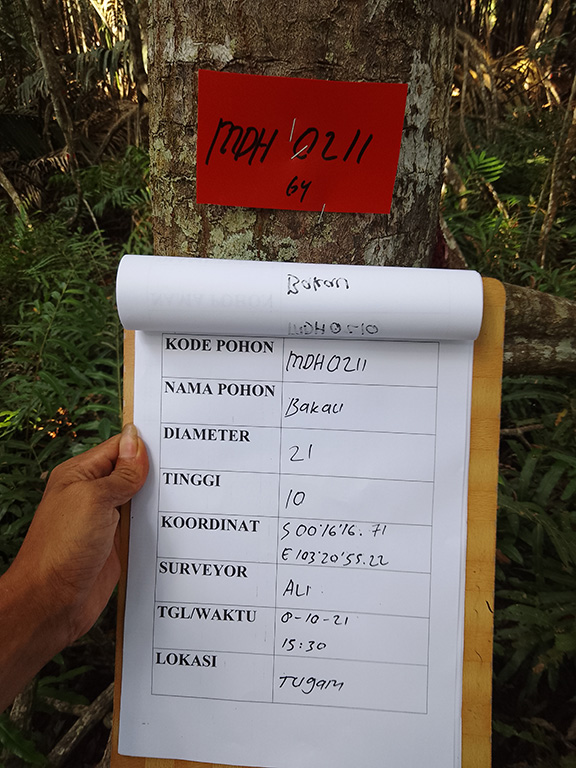 MDH 0211
64
Bakau
MDH 0210
KODE POHON MDH 0211
NAMA POHON Bakau
DIAMETER 21
TINGGI 10
KOORDINAT S 00°16'16.71
E 103°20'55.22
SURVEYOR ALI
TGL/WAKTU 8-10-21
15:30
LOKASI Tugam